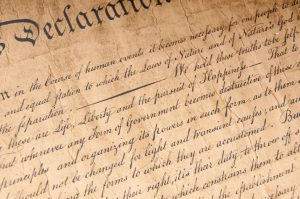 Declaration
in the Course of human events it becomes necessary for one people to
and equal station to which the Laws of Nature and of Nature's God
the separation. We hold these truths to be self
these are Life, Liberty and the pursuit of Happiness. That to
that whenever any Form of Government becomes destructive of these
principles and organizing its powers in such form, as to them
should not be changed for light and transient causes; and
the forms to which they are accustomed. But
their right, it is their duty, to throw off
which constrains them to
the establishment